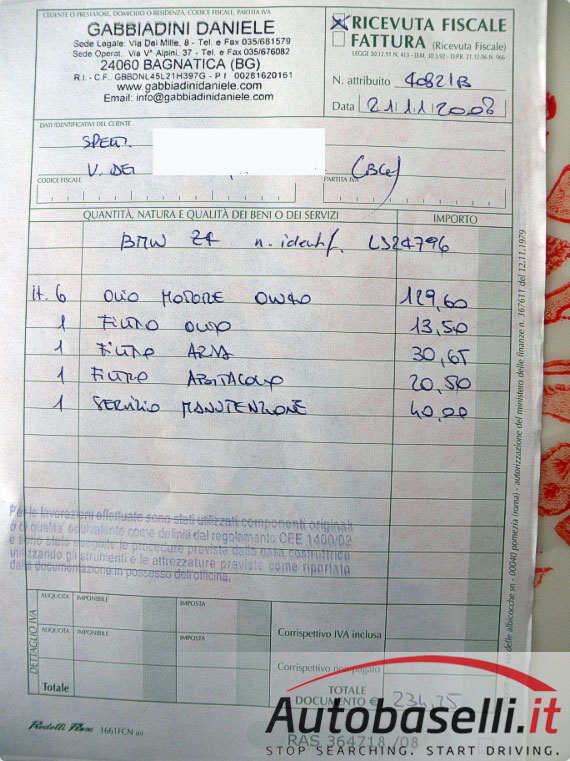 CEDENTE O PRESTATORE, DOMICILIO O RESIDENZA, CODICE FISCALE, PARTITA IVA
GABBIADINI DANIELE
Sede Lagale: Via Dei Mille, 8 - Tel. e Fax 035/681579
Sede Operat.: Via V° Alpini, 37 - Tel. e Fax 035/676082
24060 BAGNATICA (BG)
R.I. - C.F. GBBDNL45L21H397G - P I 00281620161
www.gabbiadinidaniele.com
Email: info@gabbiadinidaniele.com
X RICEVUTA FISCALE
FATTURA (Ricevuta Fiscale)
LEGGE 30.12.91 N. 413 - D.M. 30.3.92 - D.P.R. 21.12.96 N. 966
N. attribuito 40821B
Data 21 11 2008
DATI IDENTIFICATIVI DEL CLIENTE
SPETT.
V. DEI
(BG)
CODICE FISCALE
PARTITA IVA
QUANTITÀ, NATURA E QUALITÀ DEI BENI O DEI SERVIZI IMPORTO
BMW Z4 n. identif. LS24796
lt. 6 OLIO MOTORE 129,60
1 FILTRO OLIO 13,50
1 FILTRO ARIA 30,65
1 FILTRO ABITACOLO 20,50
1 SERVIZIO MANUTENZIONE 40,00
Per le lavorazioni effettuate sono stati utilizzati componenti originali
o di qualita' equivalente come definita dal regolamento CEE 1400/02
e sono state seguite le procedure previste dalla casa costruttrice
utilizzando gli strumenti e le attrezzature previste come riportato
dalla documentazione in possesso dell'officina.
DETTAGLIO IVA
ALIQUOTA IMPONIBILE IMPOSTA
ALIQUOTA IMPONIBILE IMPOSTA
Totale
Corrispettivo IVA inclusa
Corrispettivo non pagato
TOTALE
DOCUMENTO € 234,25
1661FCN
RAS 364718 /08
00040 pomezia (roma) - autorizzazione del ministero delle finanze n. 367611 del 12.11.1979
Autobaselli.it
STOP SEARCHING. START DRIVING.